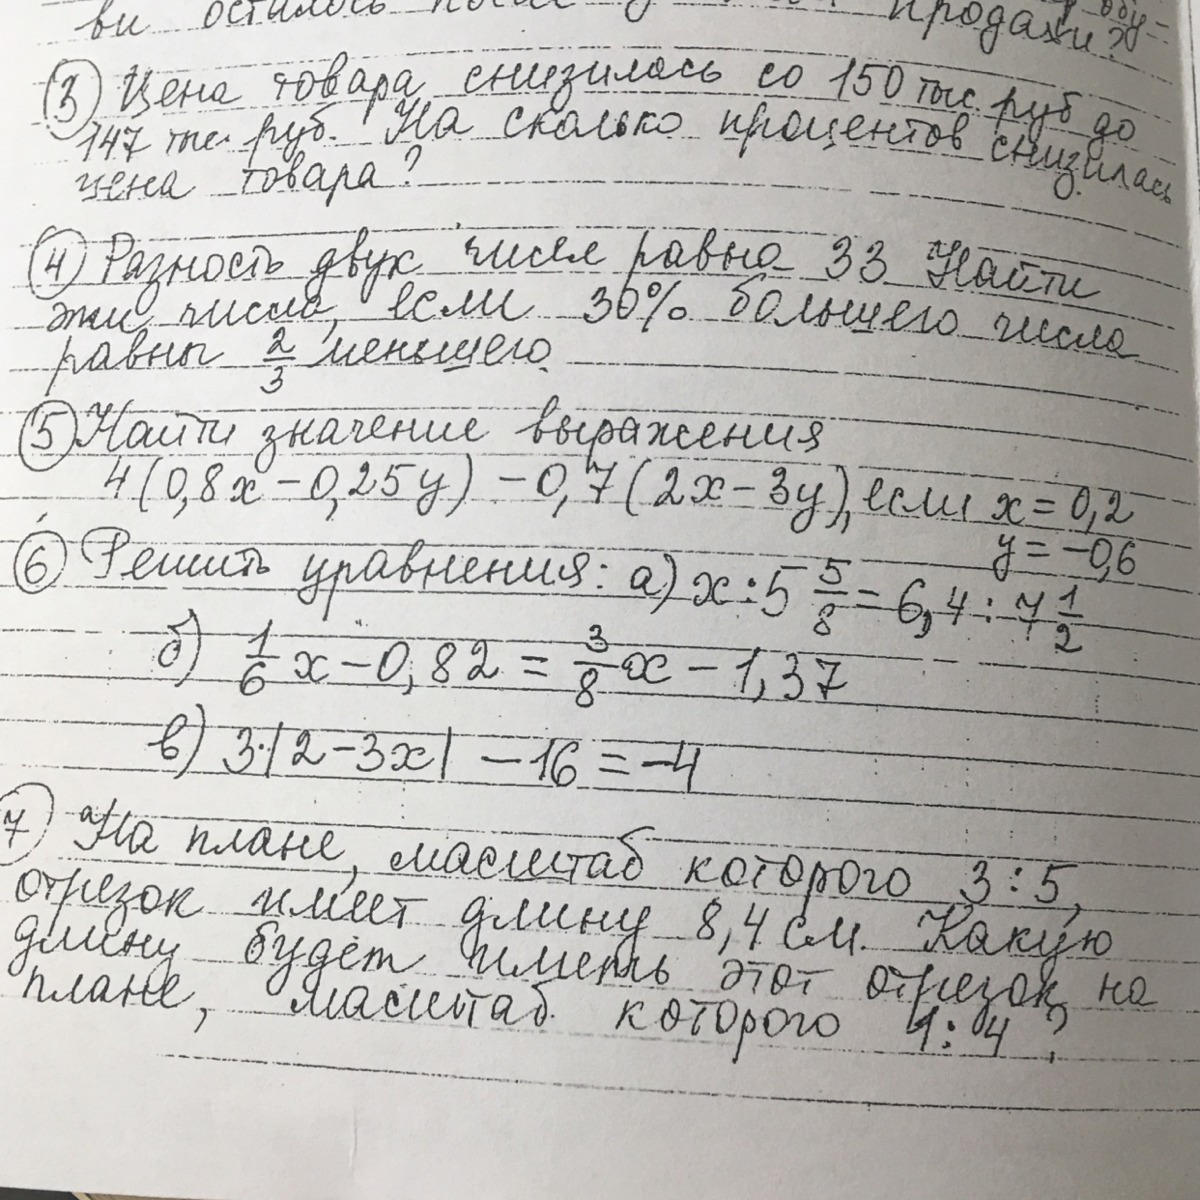 ви осталось после продажи?
③ Цена товара снизилась со 150 тыс. руб до
147 тыс. руб. На сколько процентов снизилась
цена товара?
④ Разность двух чисел равна 33 Найти
эти числа, если 30% большего числа
равны 2/3 меньшего.
⑤ Найти значение выражения
4(0,8x-0,25y) -0,7(2x-3y), если x=0,2
y=-0,6
⑥ Решить уравнения: а) x:5 5/8=6,4:7 1/2
б) 1/6 x-0,82=3/8 x-1,37
в) 3·|2-3x| -16=-4
7 На плане, масштаб которого 3:5,
отрезок имеет длину 8,4 см. Какую
длину будет иметь этот отрезок на
плане, масштаб которого 1:4?